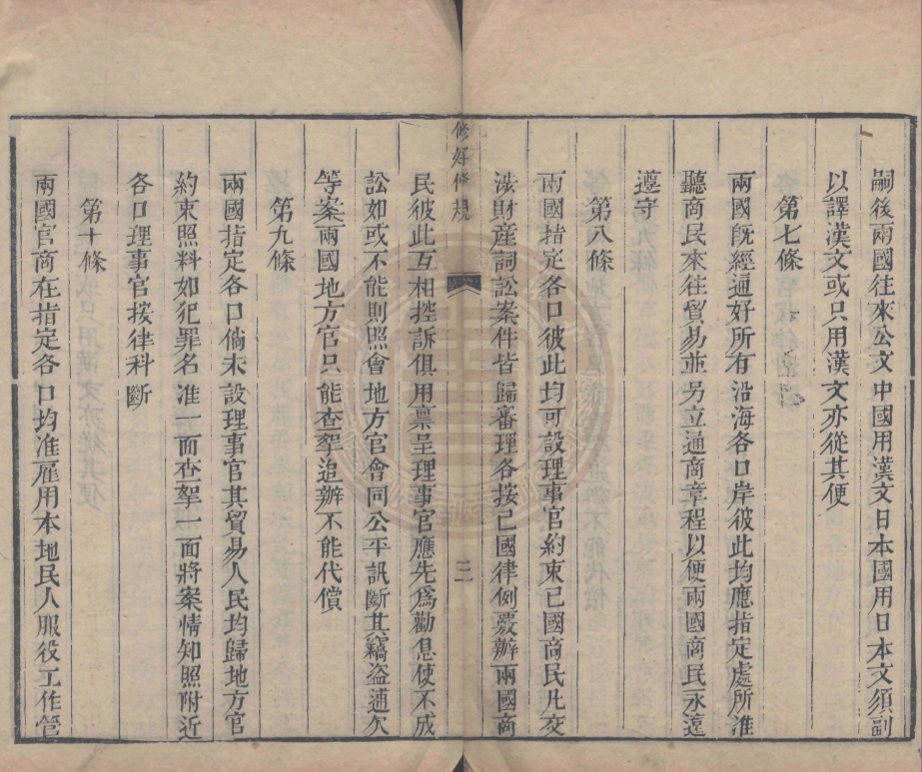 嗣後兩國往來公文中國用漢文日本國用日本文須副
以譯漢文或只用漢文亦從其便
第七條
兩國既經通好所有沿海各口岸彼此均應指定處所准
聽商民來往貿易並另立通商章程以便兩國商民永遠
遵守
第八條
兩國指定各口彼此均可設理事官約束己國商民凡交
涉財產詞訟案件皆歸審理各按己國律例覈辦兩國商
修好條規
二
民彼此互相控訴俱用稟呈理事官應先爲勸息使不成
訟如或不能則照會地方官會同公平訊斷其竊盜逋欠
等案兩國地方官只能查拏追辦不能代償
第九條
兩國指定各口倘未設理事官其貿易人民均歸地方官
約束照料如犯罪名准一面查拏一面將案情知照附近
各口理事官按律科斷
第十條
兩國官商在指定各口均准雇用本地民人服役工作管